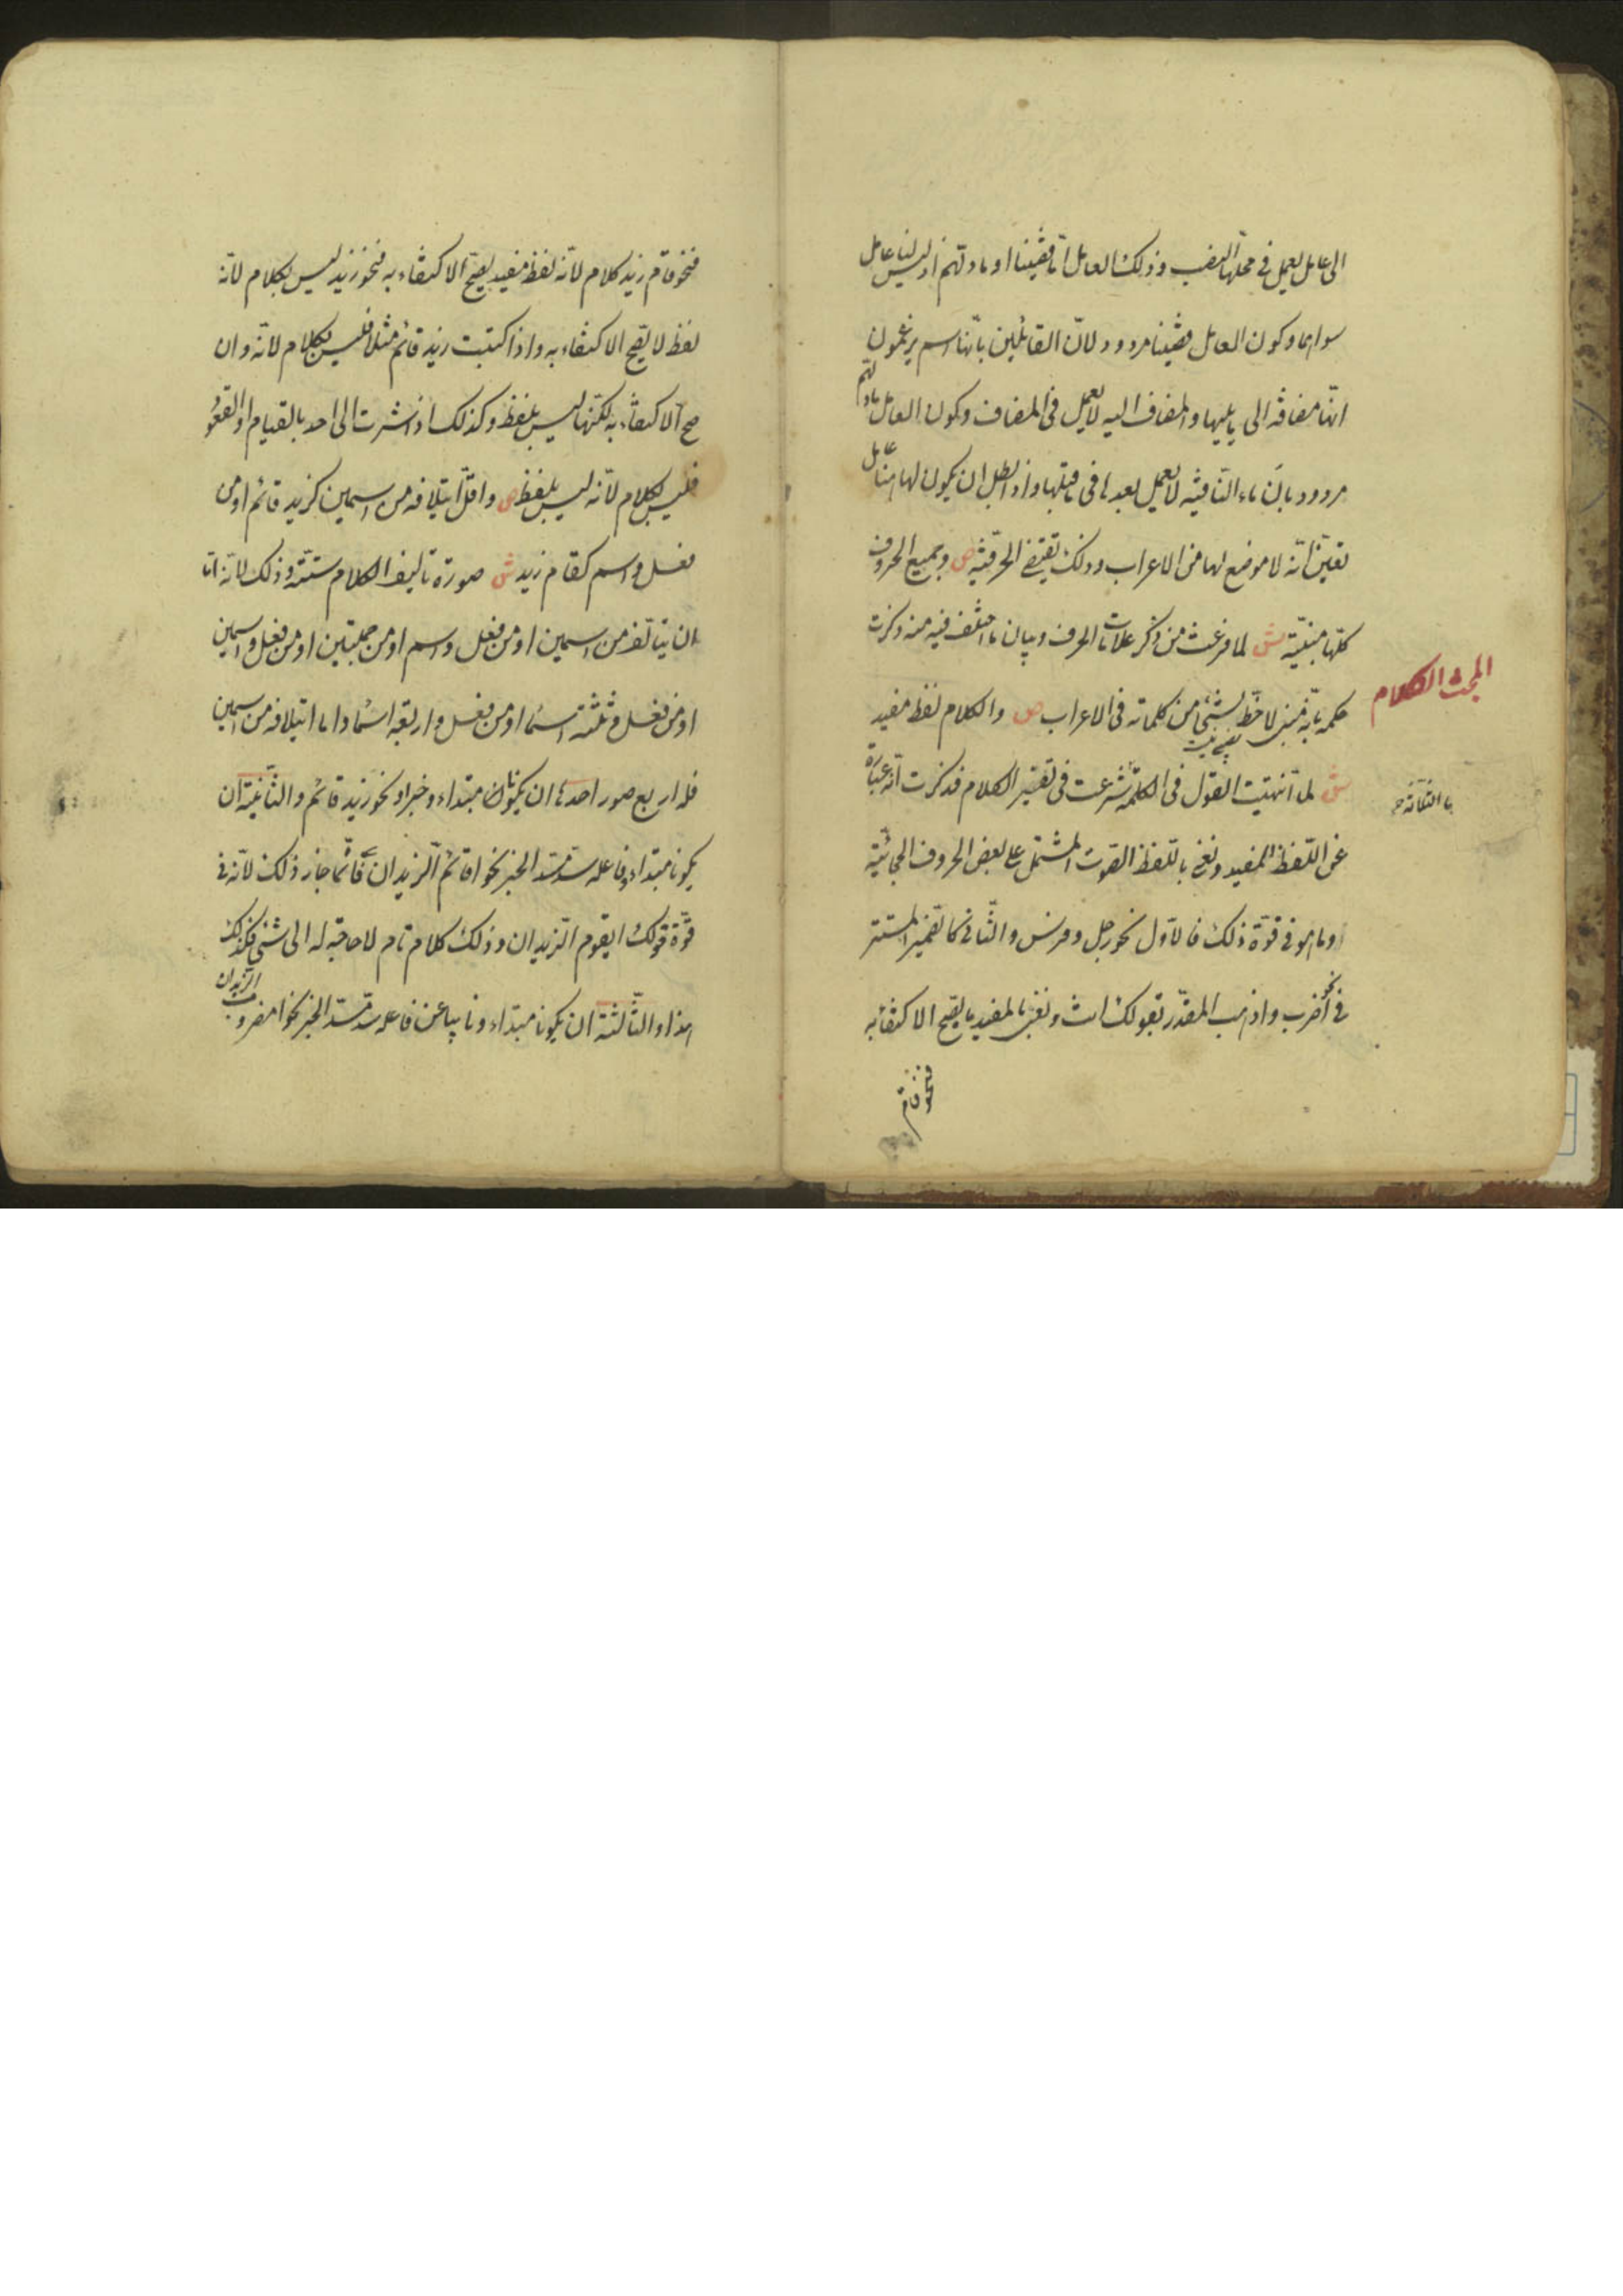 الى عامل يعمل فى محلها النصب وذلك العامل اما قضينا او ما دلتهم اذ ليس لنا عامل
سواهما وكون العامل قضينا مردود لان القائلين بانها اسم يزعمون
انها مضافة الى ما يليها والمضاف اليه لا يعمل فى المضاف وكون العامل ما دلهم
مردود بان ماء النافية لا يعمل ما بعدها فى ما قبلها واذا بطل ان يكون لها عامل
تعين انه لا موضع لها من الاعراب وذلك يقتضى الحرفية ص وجميع الحروف
كلها مبنية ش لما فرغت من ذكر علامات الحرف وبيان ما اختلف فيه منه ذكرت
حكمه بانه مبنى لا حظ لشئ من كلماته فى الاعراب ص والكلام لفظ مفيد
ش لما انتهيت القول فى الكلمة شرعت فى تفسير الكلام فذكرت انه عبارة
عن اللفظ المفيد ونعنى باللفظ الصوت المشتمل على بعض الحروف الهجائية
او ما هو فى قوة ذلك فالاول نحو رجل وفرس والثانى كالضمير المستتر
فى نحو اضرب واذهب المقدر بقولك انت ونعنى بالمفيد ما يصح الاكتفا به
فنحو قام
المبحث الكلام
فنحو قام زيد كلام لانه لفظ مفيد يصح الاكتفاء به فنحو زيد ليس بكلام لانه
لفظ لا يصح الاكتفاء به واذا كتبت زيد قائم مثلا فليس بكلام لانه وان
صح الاكتفاء به لكنها ليس بلفظ وكذلك اذا اشرت الى احد بالقيام او القعود
فليس بكلام لانه ليس بلفظ ص واقل ايتلافه من اسمين كزيد قائم او من
فعل واسم كقام زيد ش صورة تاليف الكلام ستة وذلك لانه اما
ان يتالف من اسمين او من فعل واسم او من جملتين او من فعل واسمين
او من فعل وثلثة اسماء او من فعل واربعة اسماء اما ايتلافه من اسمين
فله اربع صور احدها ان يكونا مبتداء وخبرا نحو زيد قائم والثانية ان
يكونا مبتداء وفاعله سد مسد الخبر نحو اقائم الزيدان فانما جاز ذلك لانه فى
قوة قولك ايقوم الزيدان وذلك كلام تام لا حاجة له الى شئ فكذلك
هذا والثالثة ان يكونا مبتداء ونايبا عن فاعله سد مسد الخبر نحو امضروب الزيدان